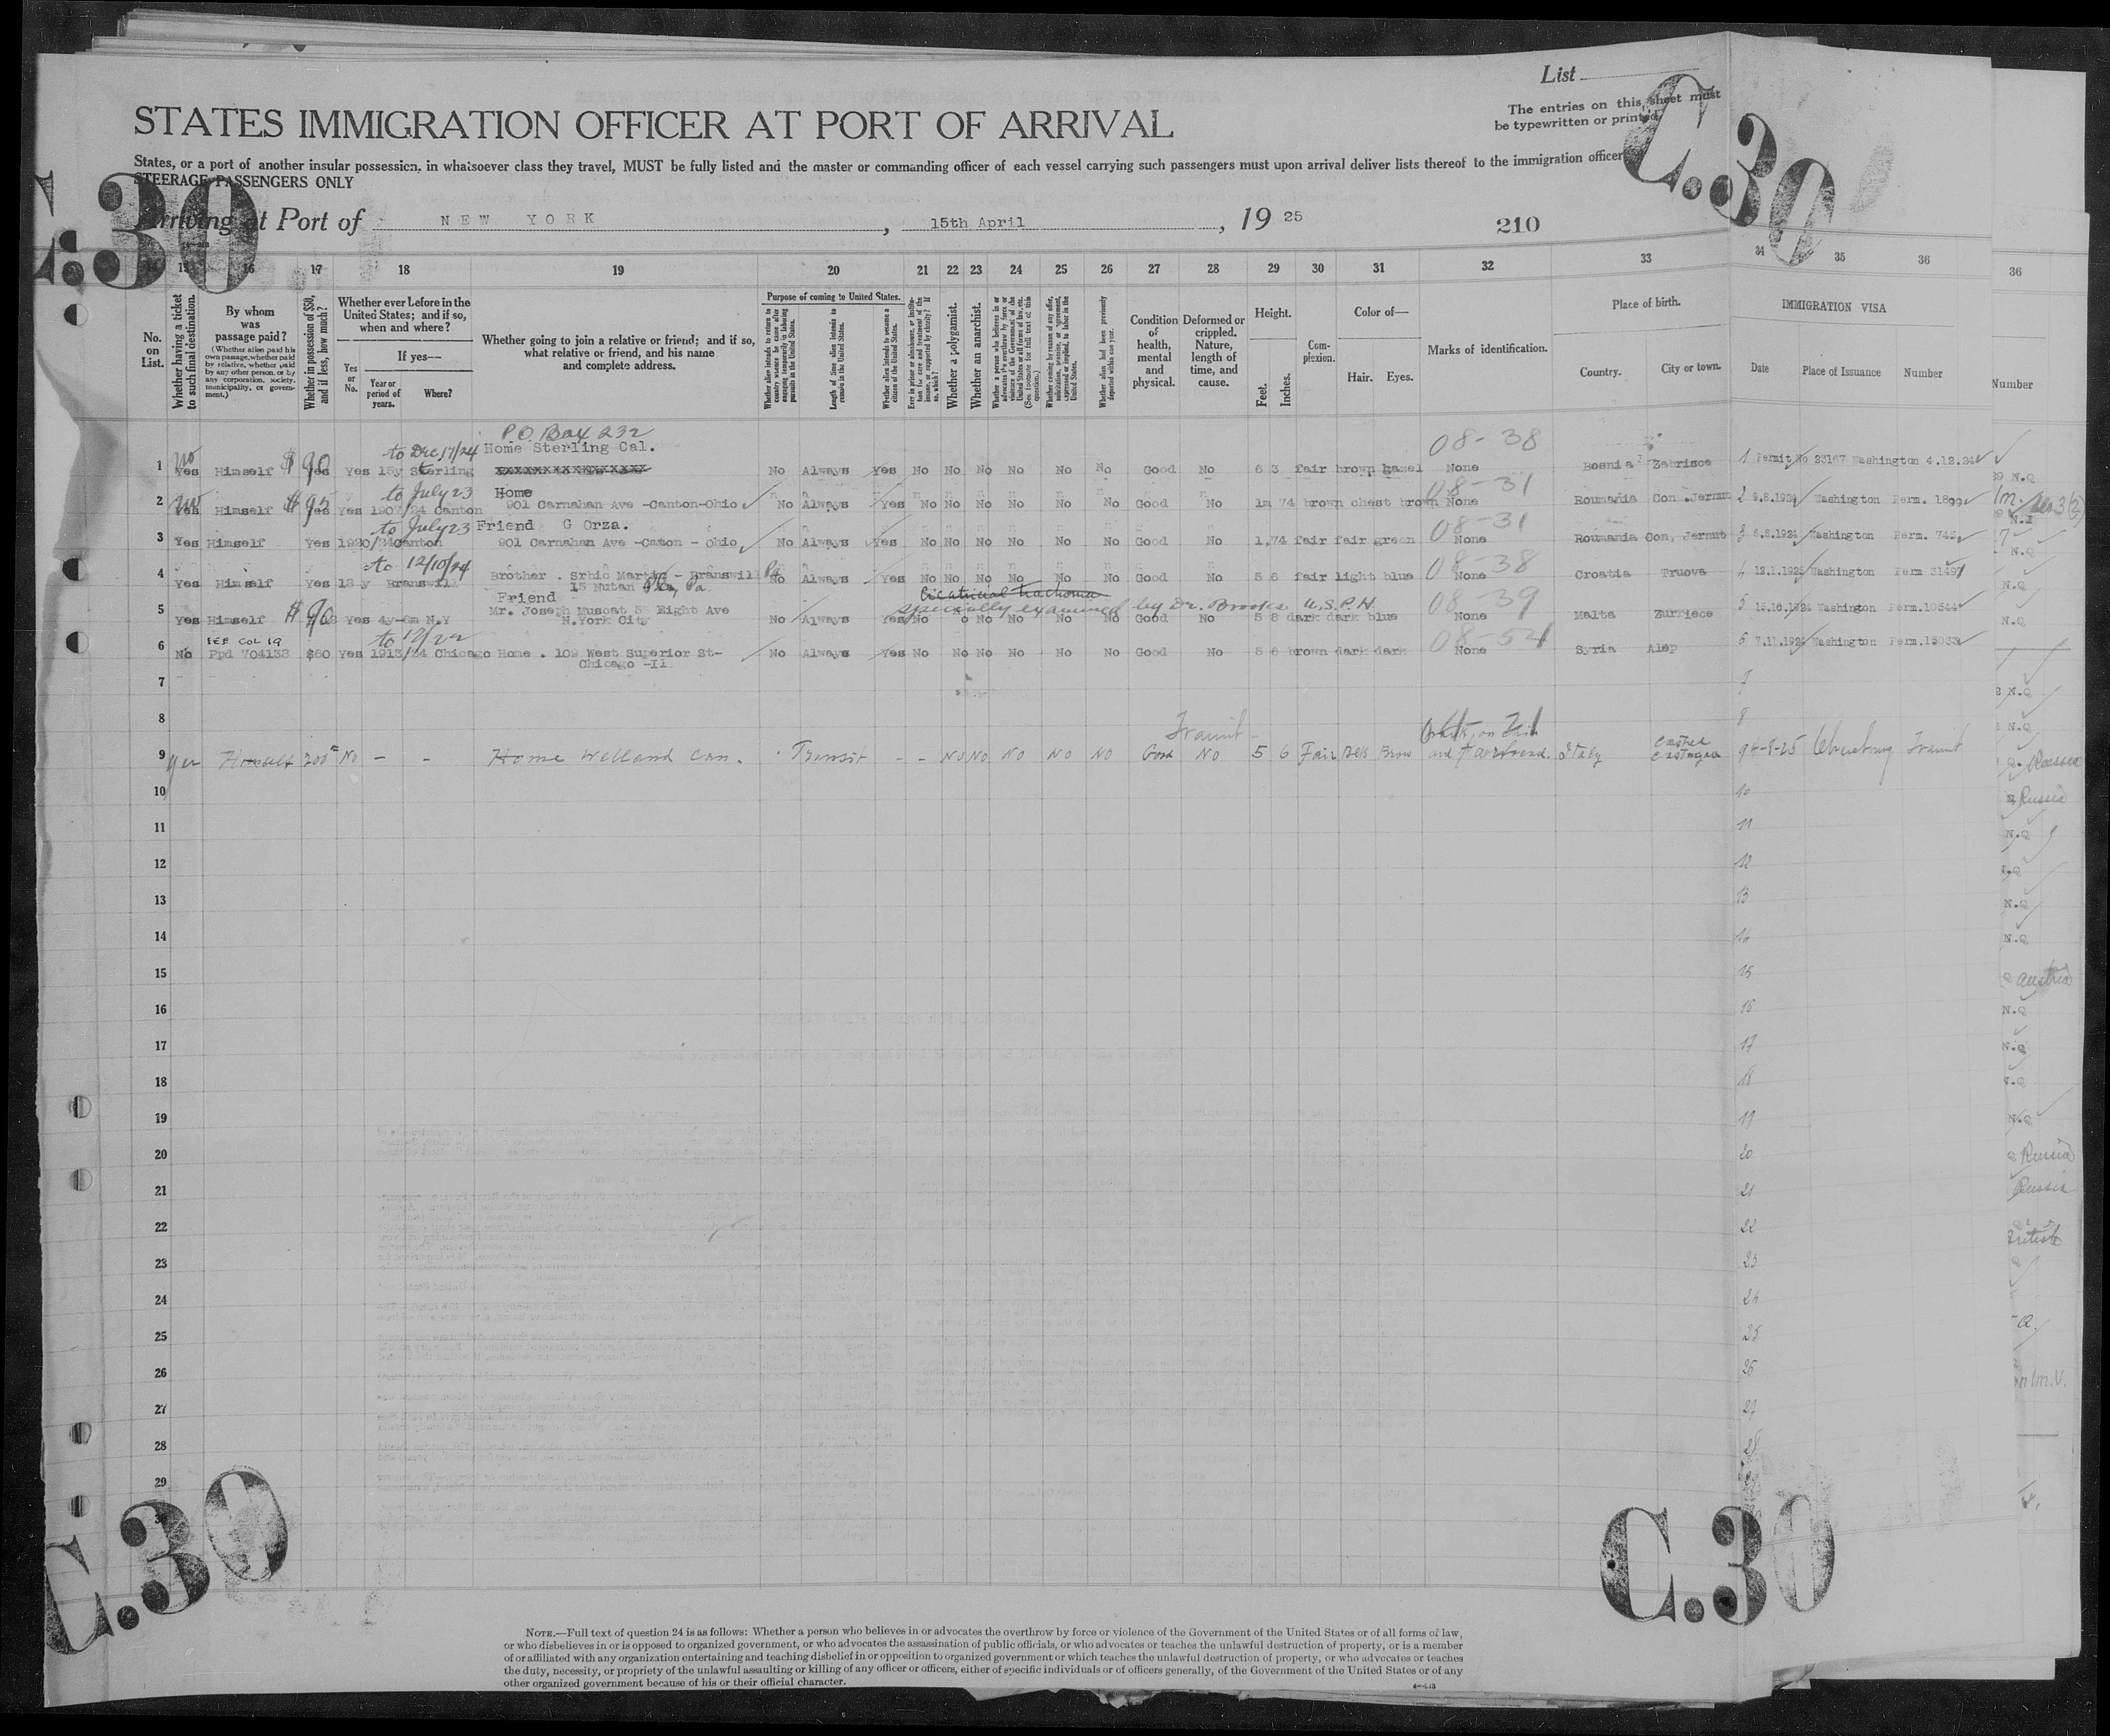 List
The entries on this sheet must
be typewritten or printed.
C.30
C.30
STATES IMMIGRATION OFFICER AT PORT OF ARRIVAL
States, or a port of another insular possession, in whatsoever class they travel, MUST be fully listed and the master or commanding officer of each vessel carrying such passengers must upon arrival deliver lists thereof to the immigration officer
STEERAGE PASSENGERS ONLY
Arriving at Port of NEW YORK, 15th April, 1925
210
15 16 17 18 19 20 21 22 23 24 25 26 27 28 29 30 31 32 33 34 35 36
36
No. on List.
Whether having a ticket to such final destination.
By whom was passage paid?
(Whether alien paid his own passage, whether paid by relative, whether paid by any other person, or by any corporation, society, municipality, or government.)
Whether in possession of $50, and if less, how much?
Whether ever before in the United States; and if so, when and where?
Yes or No.
If yes—
Year or period of years.
Where?
Whether going to join a relative or friend; and if so, what relative or friend, and his name and complete address.
Purpose of coming to United States.
Whether alien intends to return to country whence he came after engaging temporarily in laboring pursuits in the United States.
Length of time alien intends to remain in the United States.
Whether alien intends to become a citizen of the United States.
Whether a polygamist.
Whether an anarchist.
Condition of health, mental and physical.
Deformed or crippled. Nature, length of time, and cause.
Height.
Feet.
Inches.
Complexion.
Color of—
Hair. Eyes.
Marks of identification.
Place of birth.
Country. City or town.
IMMIGRATION VISA
Date Place of Issuance Number
Number
P.O. Box 232
to Dec 17/24 Home Sterling Cal. 08-38
1 No Yes Himself $90 Yes Yes 18y Sterling xxxxxxxxxxxxxxxxxxx No Always Yes No No No No No No Good No 6 3 fair brown hazel None Bosnia Zabrisce 1 Permit No 23167 Washington 4.12.24
to July 23 Home 08-31
2 No Yes Himself Yes Yes 1907/24 Canton 901 Carnahan Ave -Canton-Ohio No Always Yes No No No No No No Good No 1m 74 brown chest brown None Roumania Con. Jernut 2 9.8.1924 Washington Perm. 1899
to July 23 Friend G Orza. 08-31
3 Yes Himself Yes 1920/24 Canton 901 Carnahan Ave -Canton - Ohio No Always Yes No No No No No No Good No 1,74 fair fair green None Roumania Con, Jernut 3 Washington Perm. 745
to 12/10/24 08-38
4 Yes Himself Yes 18 y Branswill Brother . Srbic Martin - Branswill Pa No Always Yes No No No No No No Good No 5 8 fair light blue None Croatia Truova 4 Washington Perm 31497
15 Natan Pa
Friend Cicatricial trachoma
specially examined by Dr. Brooks U.S.P.H. 08-39
5 Yes Himself $90 Yes 4y-6m N.Y Mr. Joseph Muscat 55 Eight Ave No Always Yes No No No No No Good No 5 8 dark dark blue None Malta Zurriece 5 15.10.1924 Washington Perm.10544
N.York City
SEE COL 19 to 12/22 08-52
6 No Ppd 704133 $60 Yes 1913/24 Chicago Home . 109 West Superior St- No Always Yes No No No No No No Good No 5 6 brown dark dark None Syria Alep 6 7.11.1924 Washington Perm.15033
Chicago -Il.
7
8
Transit
9 yes Himself 200 No - - Home Welland Can. Transit - - No No No No No Good No 5 6 Fair Blk Brow and forehead. Italy Castel 9 Transit
10
11
12
13
14
15
16
17
18
19
20
21
22
23
24
25
26
27
28
29
30
N.Q
N.Q
N.Q
N.Q
N.Q
N.Q
Russia
Russia
N.Q
N.Q
N.Q
Austria
N.Q
N.Q
N.Q
N.Q
Russia
Russia
British
C.30
C.30
NOTE.—Full text of question 24 is as follows: Whether a person who believes in or advocates the overthrow by force or violence of the Government of the United States or of all forms of law,
or who disbelieves in or is opposed to organized government, or who advocates the assassination of public officials, or who advocates or teaches the unlawful destruction of property, or is a member
of or affiliated with any organization entertaining and teaching disbelief in or opposition to organized government or which teaches the unlawful destruction of property, or who advocates or teaches
the duty, necessity, or propriety of the unlawful assaulting or killing of any officer or officers, either of specific individuals or of officers generally, of the Government of the United States or of any
other organized government because of his or their official character.